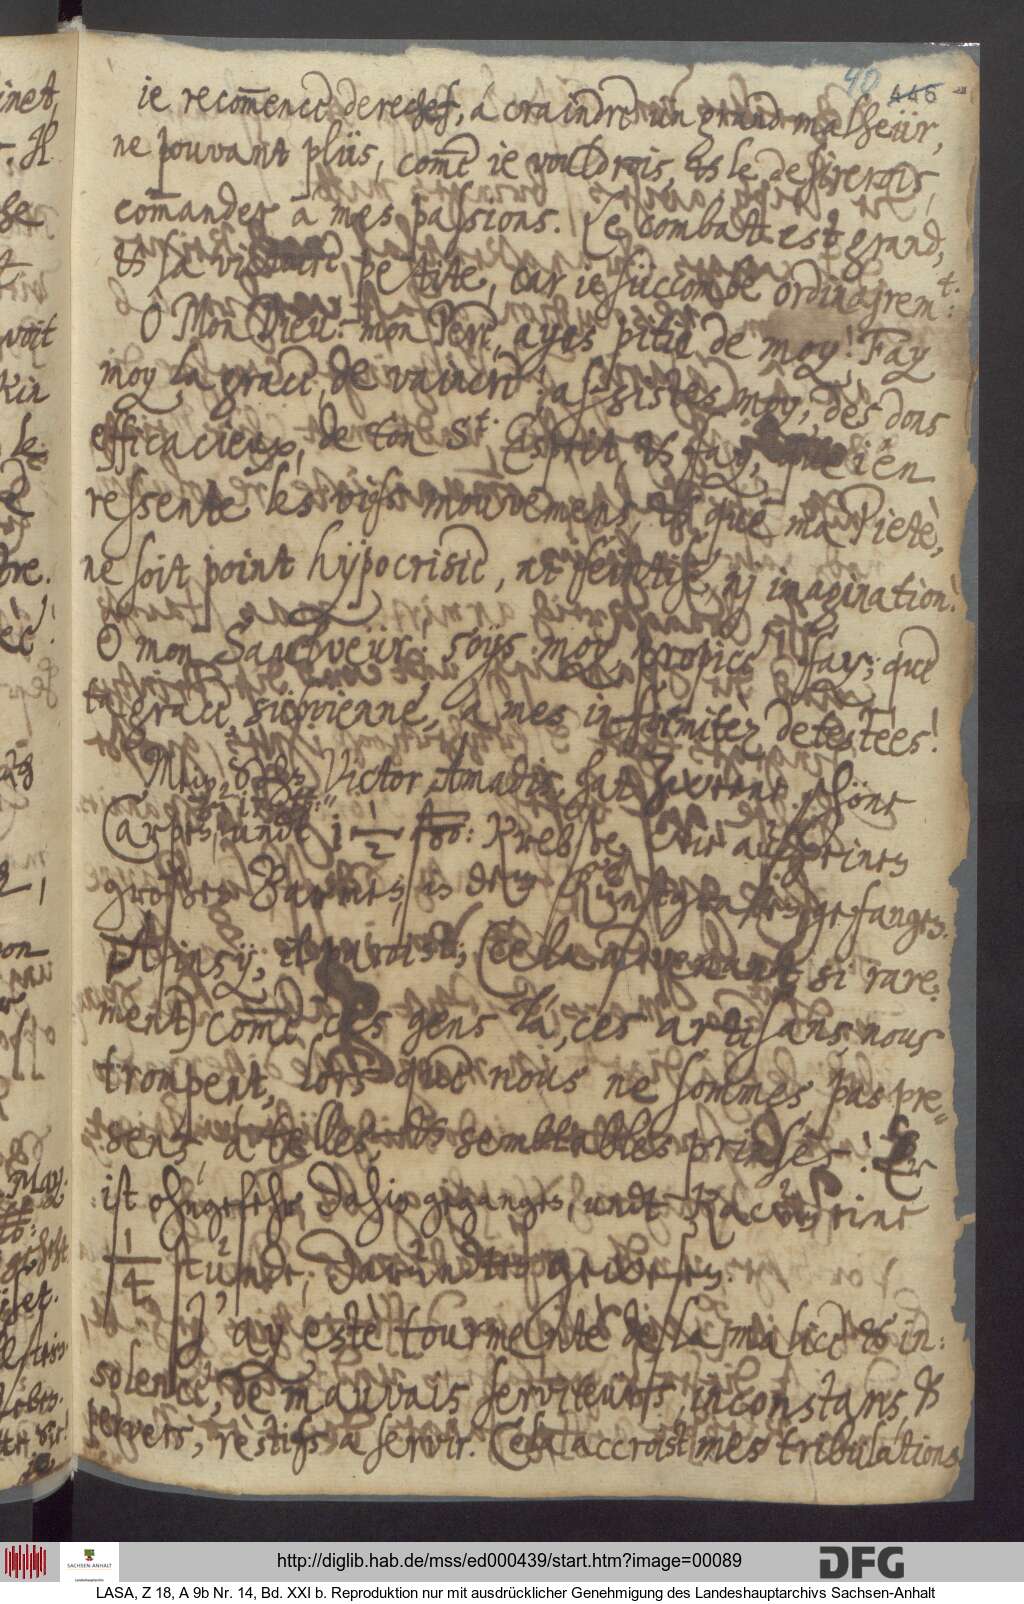 40 446
ie recom̃ence derechef, à craindre ün grand malheür,
ne pouvant plüs, com̃e ie vouldrois, & le desirerois,
com̃ander à mes passions. Le combatt est grand,
& la victoire, petite, car ie süccombe ordinairem.t:
O Mon Dieu! mon Pere, ayes pitiè de moy! Fay
moy la grace, de vaincre! assistes moy, des dons
efficacieux, de ton S.t Esprit, & fay, que i'en
ressente les vifs mouvemens, & que ma Pietè,
ne soit point hÿpocrisie, ni feintise, nj imagination!
O mon Saulveür! soÿs moy propice! fay, que
ta grace, sübvienne, a mes infirmitèz detestèes!
Mein Sohn Victor Amadis, hat zwene schöne
Carpen, undt 1 1/2 {Schock} Krebße, mit außm kleinen
großen Bahren, in dem Künstgraben gefangen.
Ainsÿ, il paroist; (Cela arrivant si rare:
ment) com̃e ces gens là, ces artisans, nous
trompent, lors que nous ne sommes pas pre„
sens à telles, & semblables prinses! Er
ist ohngefehr, dahin gegangen, undt kaum eine
1/4 stunde, darundten gewesen.
J'ay estè tourmentè de la malice & in:
solence, de mauvais serviteurs, inconstans, &
pervers, rèstifs à servir. Cela accroist mes tribulations
http://diglib.hab.de/mss/ed000439/start.htm?image=00089
SACHSEN-ANHALT
DFG
LASA, Z 18, A 9b Nr. 14, Bd. XXI b. Reproduktion nur mit ausdrücklicher Genehmigung des Landeshauptarchivs Sachsen-Anhalt